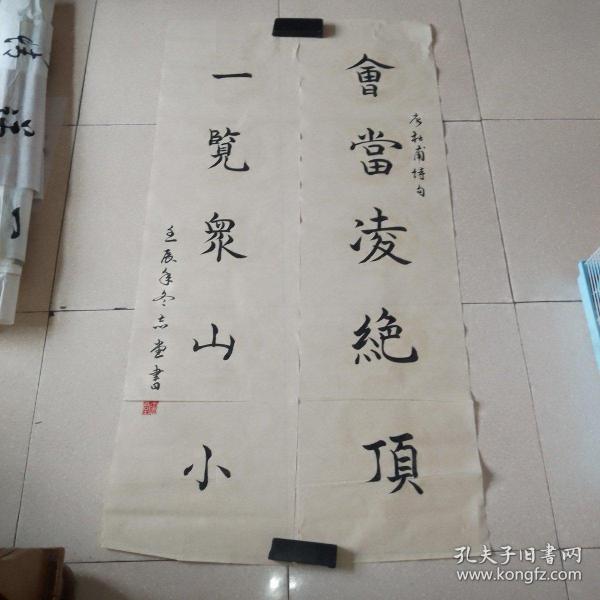 會當凌絕頂
杜甫詩句
一覽眾山小
壬辰年冬志堂書
孔夫子旧書网
www.kongfz.com